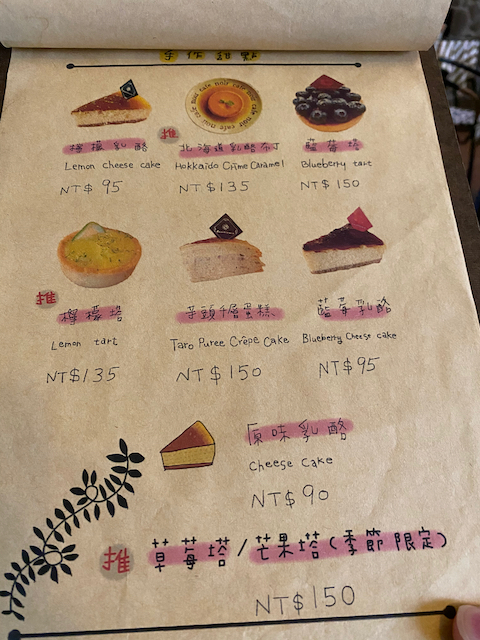 手作甜點
檸檬乳酪
Lemon cheese cake
NT$ 95
推 北海道乳酪布丁
Hokkaido Crème Caramel
NT$135
藍莓塔
Blueberry tart
NT$ 150
推 檸檬塔
Lemon tart
NT$135
芋頭千層蛋糕
Taro Puree Crêpe Cake
NT$ 150
藍莓乳酪
Blueberry Cheese cake
NT$95
原味乳酪
Cheese Cake
NT$90
推 草莓塔/芒果塔(季節限定)
NT$150